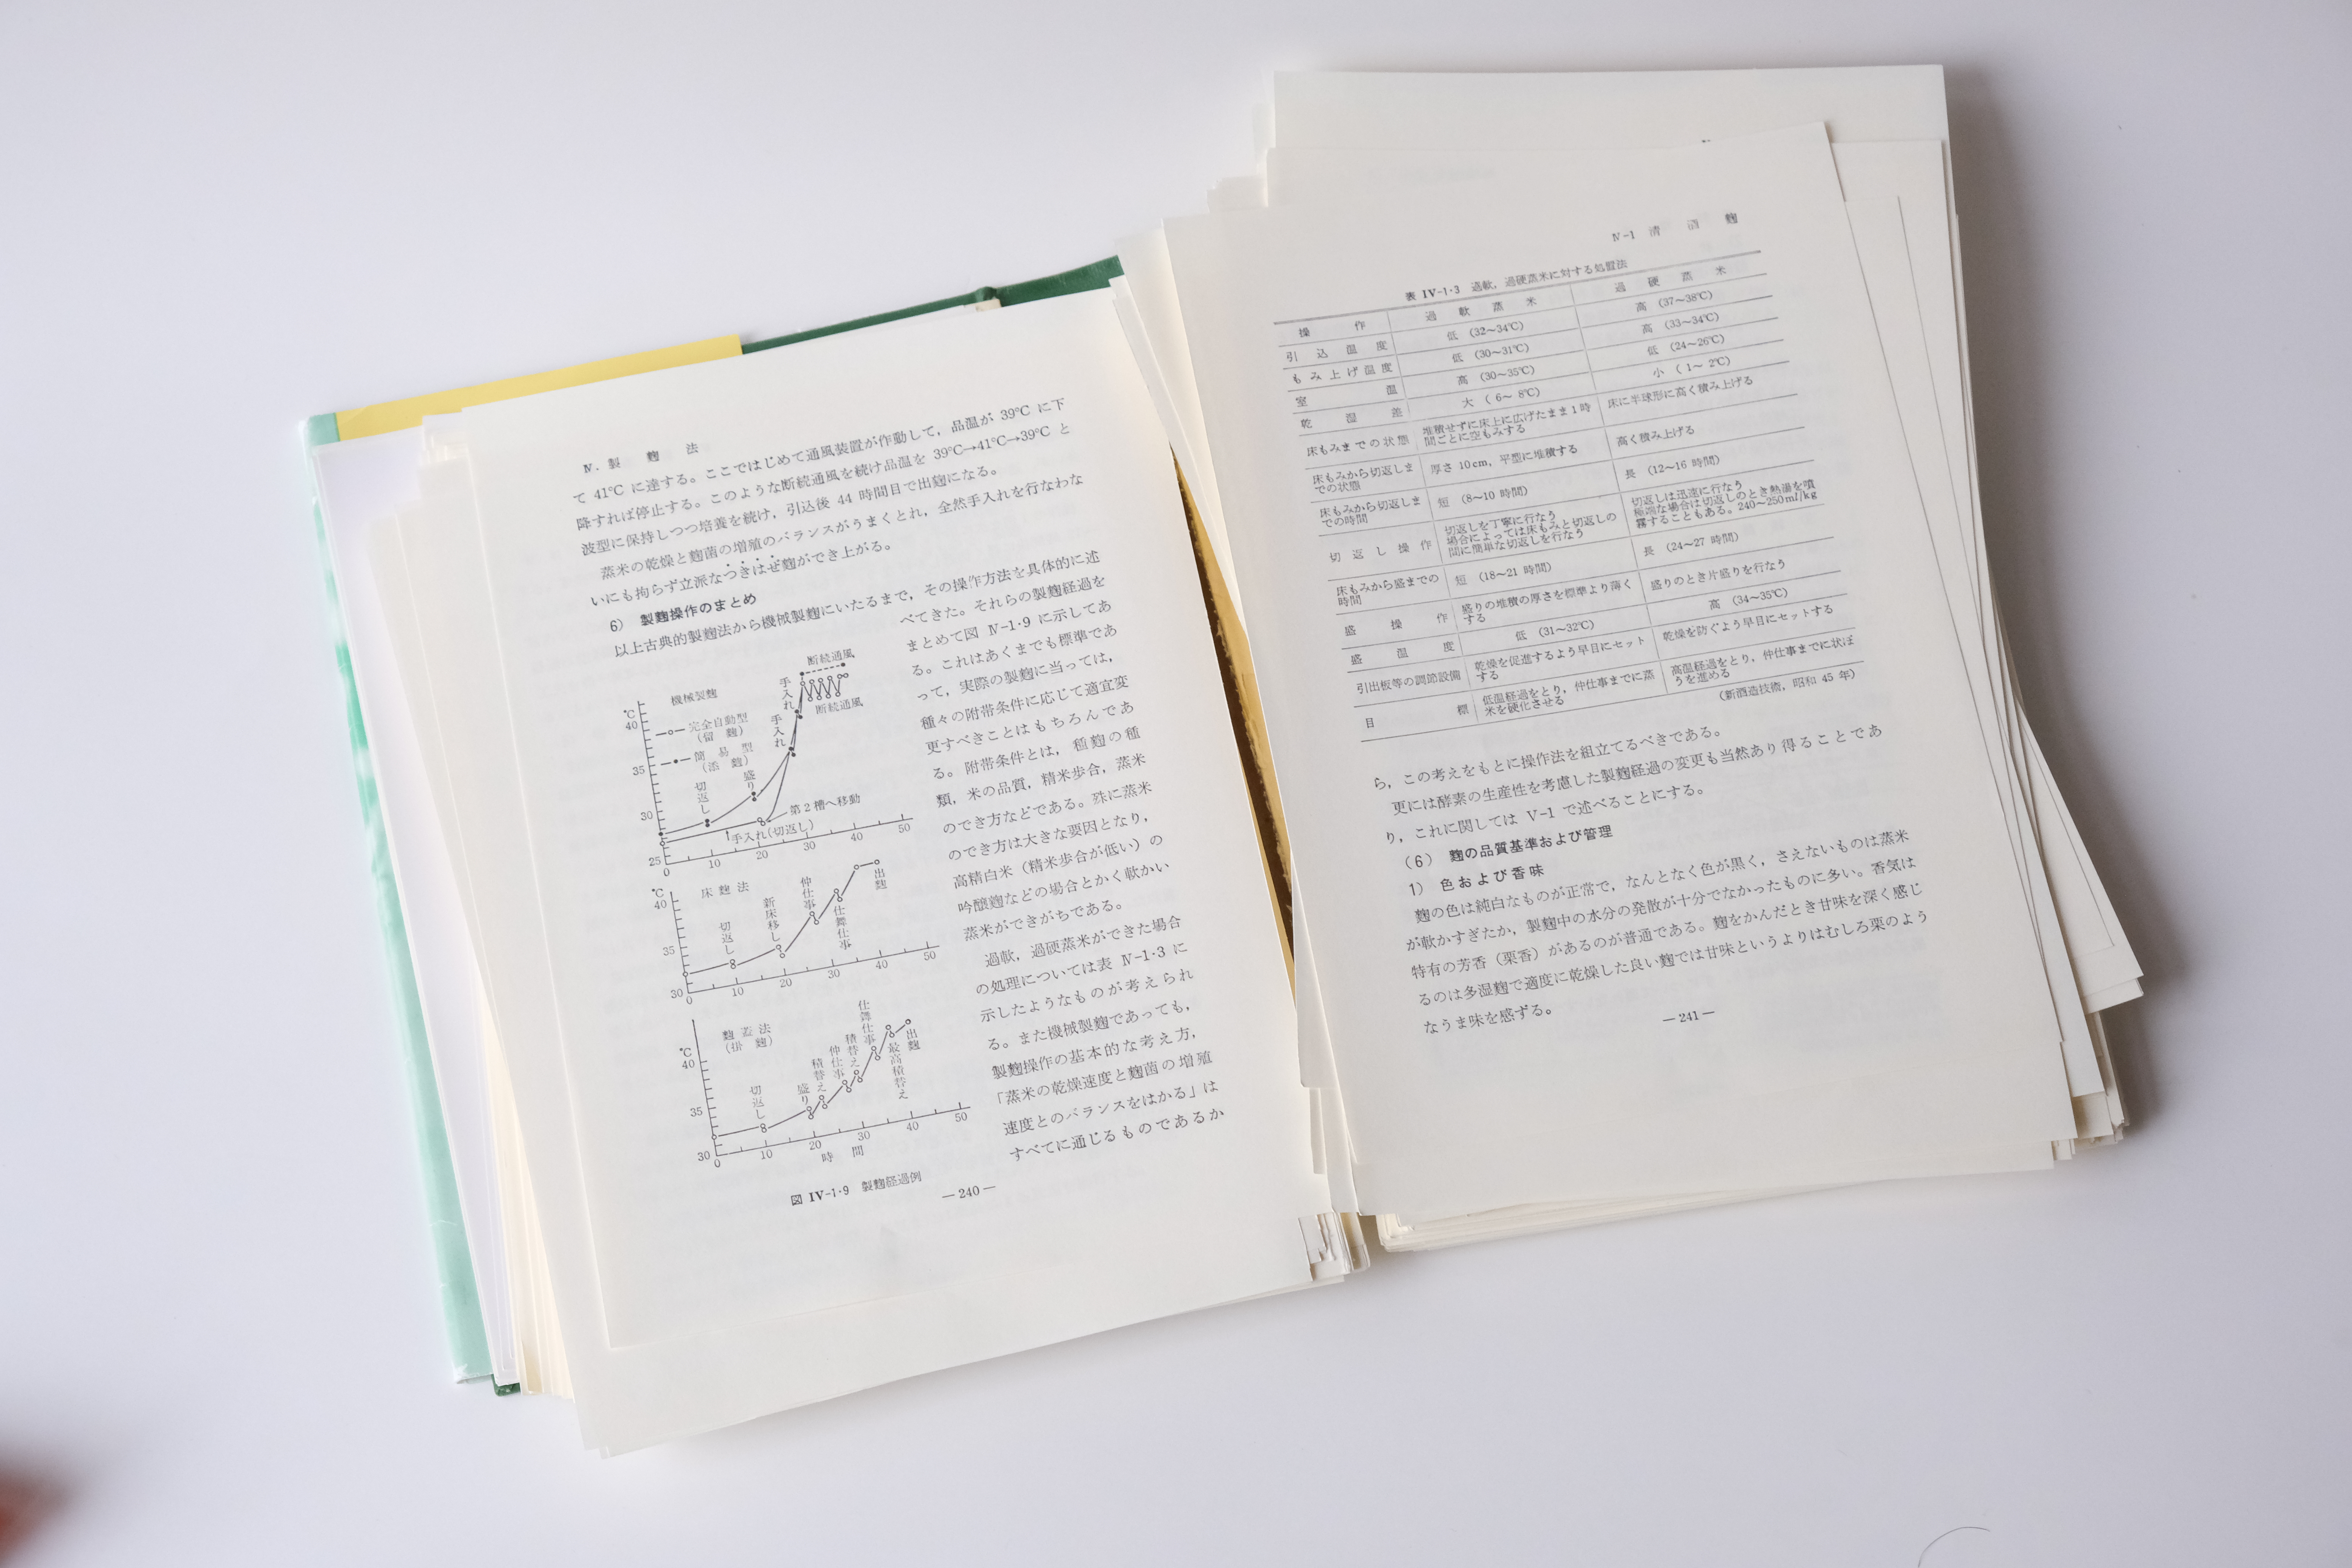 Ⅳ. 製麹法
て 41℃ に達する。ここではじめて通風装置が作動して，品温が 39℃ に下
降すれば停止する。このような断続通風を続け品温を 39℃→41℃→39℃ と
波型に保持しつつ培養を続け，引込後 44 時間目で出麹になる。
蒸米の乾燥と麹菌の増殖のバランスがうまくとれ，全然手入れを行なわな
いにも拘らず立派なつきはぜ麹ができ上がる。
6） 製麹操作のまとめ
以上古典的製麹法から機械製麹にいたるまで，その操作方法を具体的に述
べてきた。それらの製麹経過を
まとめて図 Ⅳ-1・9 に示してあ
る。これはあくまでも標準であ
って，実際の製麹に当っては，
種々の附帯条件に応じて適宜変
更すべきことはもちろんであ
る。附帯条件とは，種麹の種
類，米の品質，精米歩合，蒸米
のでき方などである。殊に蒸米
のでき方は大きな要因となり，
高精白米（精米歩合が低い）の
吟醸麹などの場合とかく軟かい
蒸米ができがちである。
過軟，過硬蒸米ができた場合
の処理については表 Ⅳ-1・3 に
示したようなものが考えられ
る。また機械製麹であっても，
製麹操作の基本的な考え方，
「蒸米の乾燥速度と麹菌の増殖
速度とのバランスをはかる」は
すべてに通じるものであるか
機械製麹
℃
40
35
30
25
完全自動型
（留麹）
簡易型
（添麹）
切返し
盛り
手入れ
手入れ
断続通風
断続通風
第2槽へ移動
手入れ(切返し)
0 10 20 30 40 50
床麹法
℃
40
35
30
切返し
新床移し
仲仕事
仕舞仕事
出麹
0 10 20 30 40 50
麹蓋法
（掛麹）
℃
40
35
30
切返し
盛り
積替え
仲仕事
積替え
仕舞仕事
最高積替え
出麹
0 10 20 30 40 50
時間
図 Ⅳ-1・9 製麹経過例
— 240 —
Ⅳ-1 清酒麹
表 Ⅳ-1・3 過軟，過硬蒸米に対する処置法
操作 過軟蒸米 過硬蒸米
引込温度 低（32～34℃） 高（37～38℃）
もみ上げ温度 低（30～31℃） 高（33～34℃）
室温 高（30～35℃） 低（24～26℃）
乾湿差 大（6～8℃） 小（1～2℃）
床もみまでの状態 堆積せずに床上に広げたまま1時 床に半球形に高く積み上げる
間ごとに空もみする
床もみから切返しま 厚さ 10cm，平型に堆積する 高く積み上げる
での状態
床もみから切返しま 短（8～10 時間） 長（12～16 時間）
での時間
切返し操作 切返しを丁寧に行なう 切返しは迅速に行なう
場合によっては床もみと切返しの 極端な場合は切返しのとき熱湯を噴
間に簡単な切返しを行なう 霧することもある。240～250ml/kg
床もみから盛までの 短（18～21 時間） 長（24～27 時間）
時間
盛操作 盛りの堆積の厚さを標準より薄く 盛りのとき片盛りを行なう
する
盛温度 低（31～32℃） 高（34～35℃）
引出板等の調節設備 乾燥を促進するよう早目にセット 乾燥を防ぐよう早目にセットする
する
目標 低温経過をとり，仲仕事までに蒸 高温経過をとり，仲仕事までに状ぼ
米を硬化させる うを進める
（新酒造技術，昭和 45 年）
ら，この考えをもとに操作法を組立てるべきである。
更には酵素の生産性を考慮した製麹経過の変更も当然あり得ることであ
り，これに関しては V-1 で述べることにする。
（6） 麹の品質基準および管理
1） 色および香味
麹の色は純白なものが正常で，なんとなく色が黒く，さえないものは蒸米
が軟かすぎたか，製麹中の水分の発散が十分でなかったものに多い。香気は
特有の芳香（栗香）があるのが普通である。麹をかんだとき甘味を深く感じ
るのは多湿麹で適度に乾燥した良い麹では甘味というよりはむしろ栗のよう
なうま味を感ずる。
— 241 —